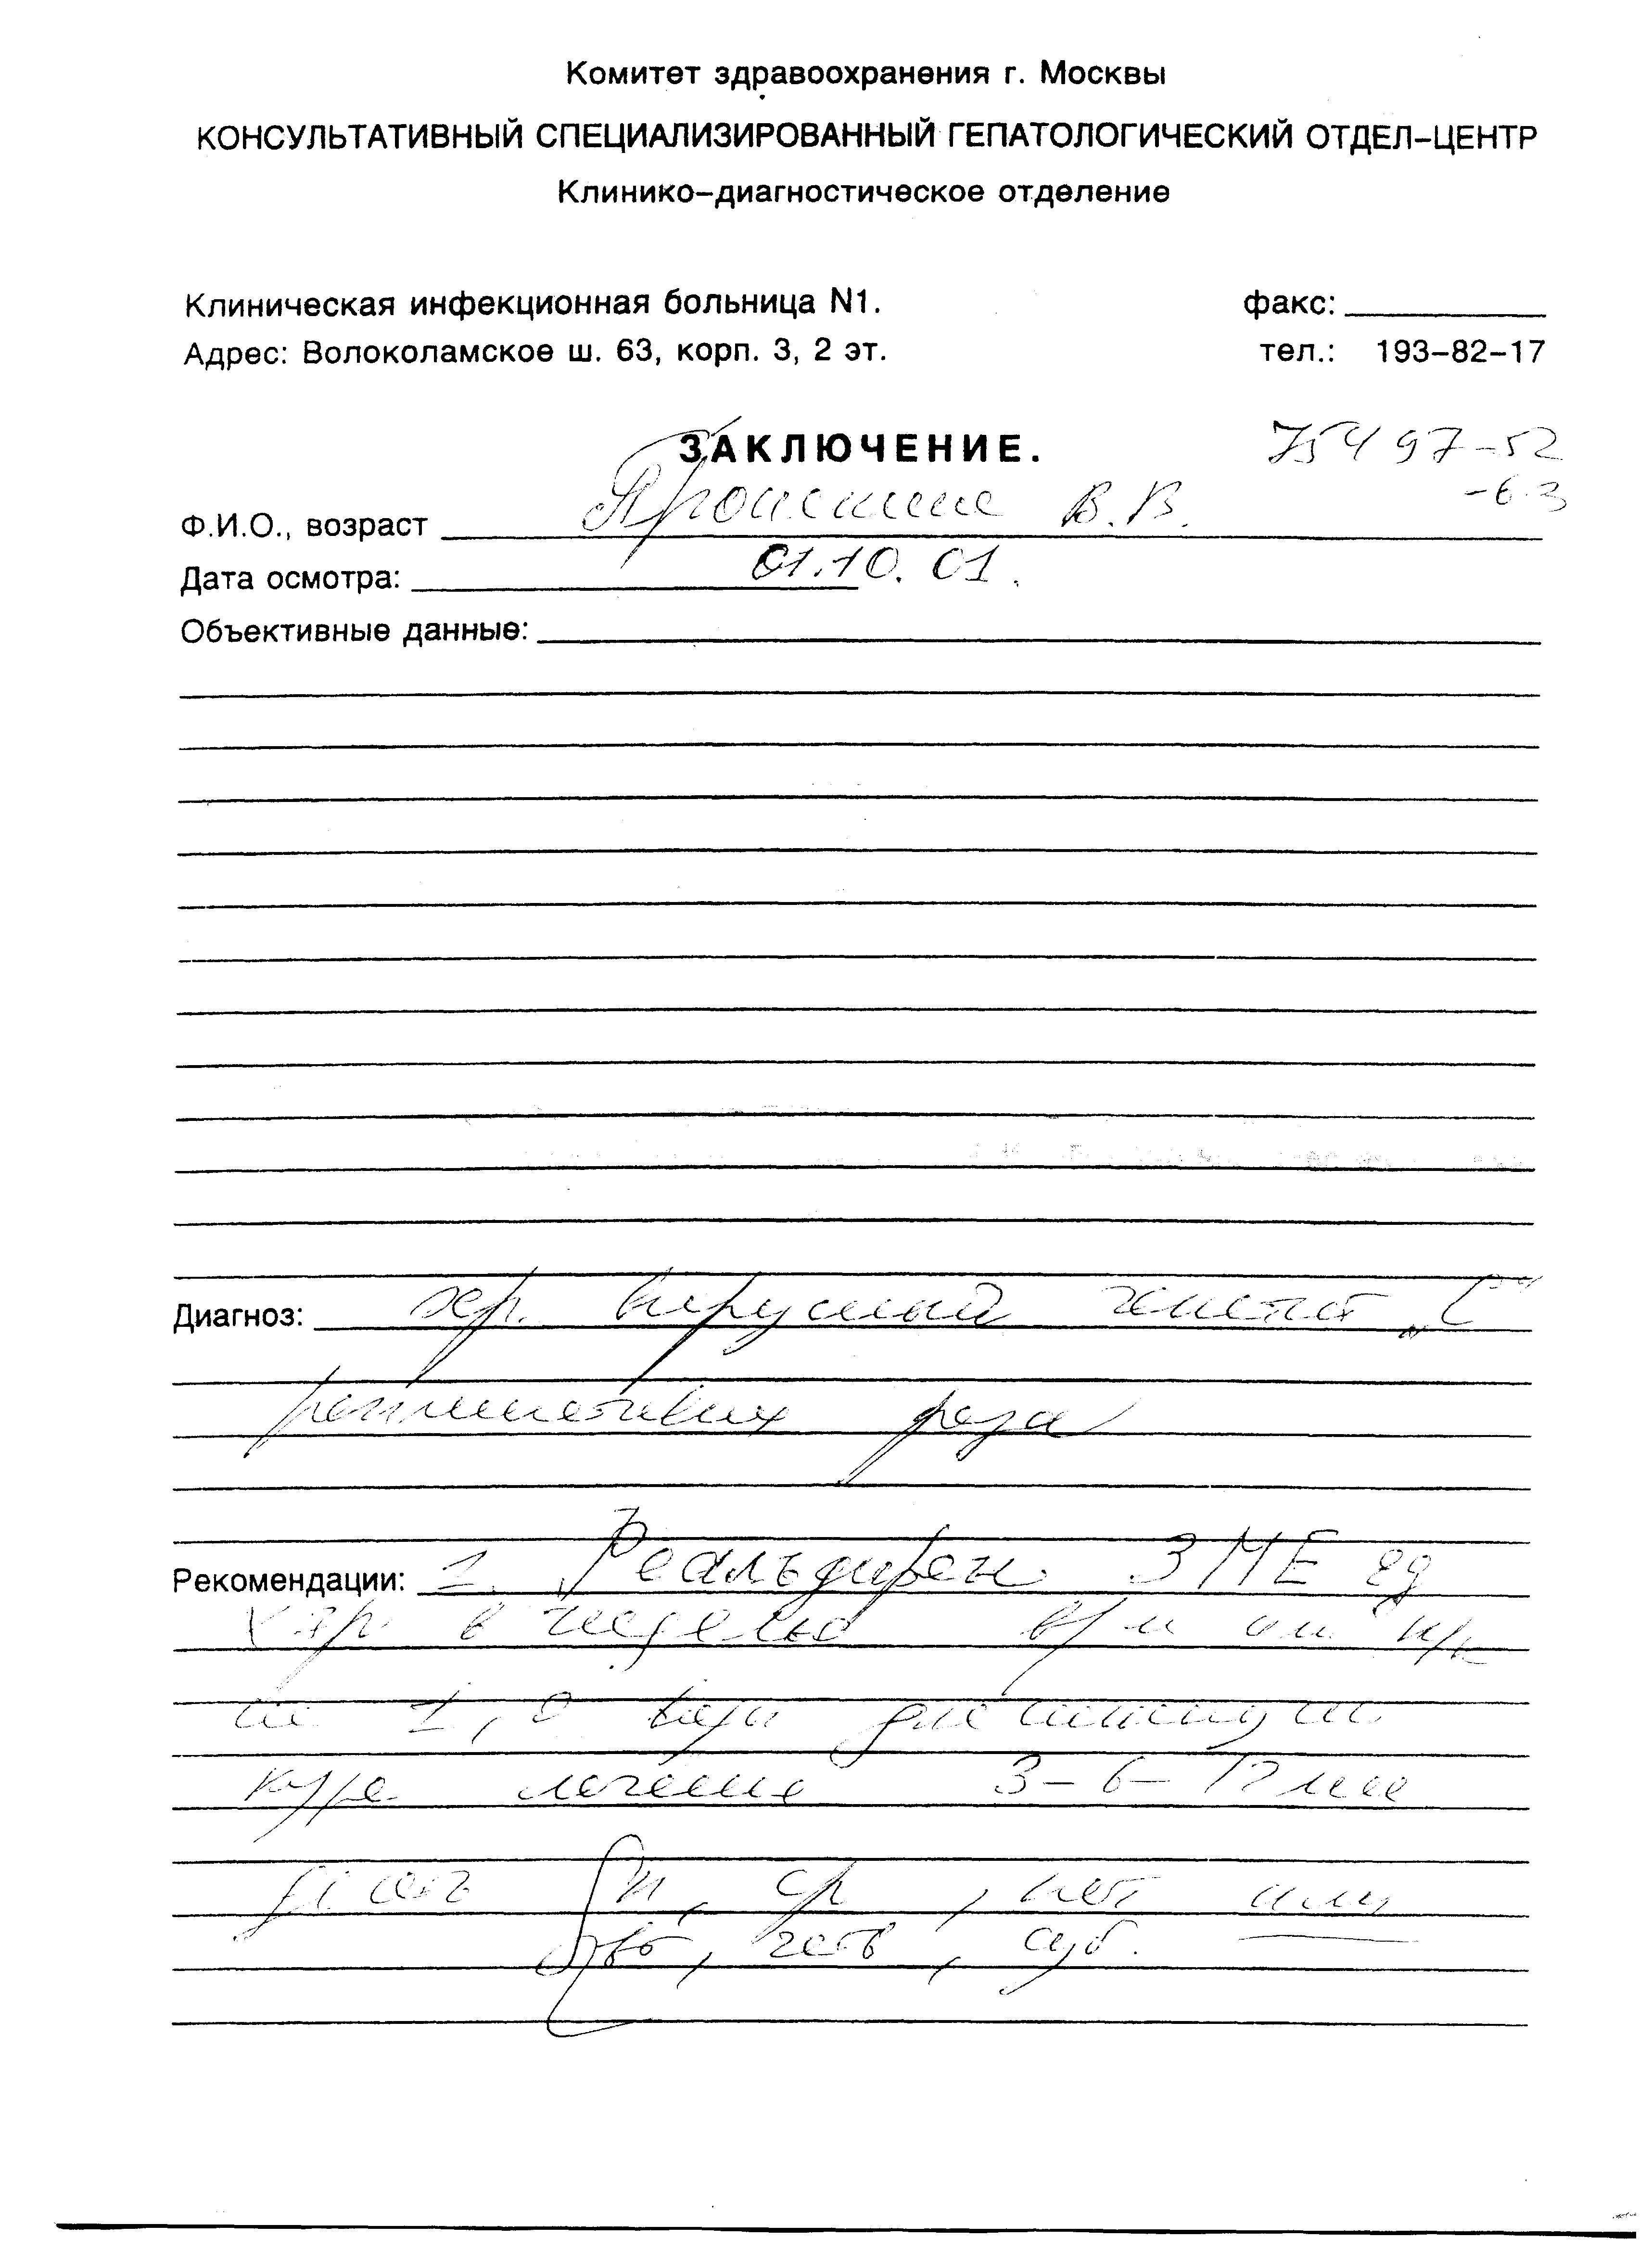 Комитет здравоохранения г. Москвы
КОНСУЛЬТАТИВНЫЙ СПЕЦИАЛИЗИРОВАННЫЙ ГЕПАТОЛОГИЧЕСКИЙ ОТДЕЛ-ЦЕНТР
Клинико-диагностическое отделение
Клиническая инфекционная больница N1. факс:
Адрес: Волоколамское ш. 63, корп. 3, 2 эт. тел.: 193-82-17
ЗАКЛЮЧЕНИЕ. 754 97-52
-63
Ф.И.О., возраст В.В.
Дата осмотра: 01.10.01.
Объективные данные:
Диагноз: хр. вирусный гепатит „С"
фаза
Рекомендации: 1. Реальдирон 3 МЕ ед
в неделю в/м или п/к
1,0 воды
курс лечения 3-6-12 мес
ср, пят или
вт, четв, суб.